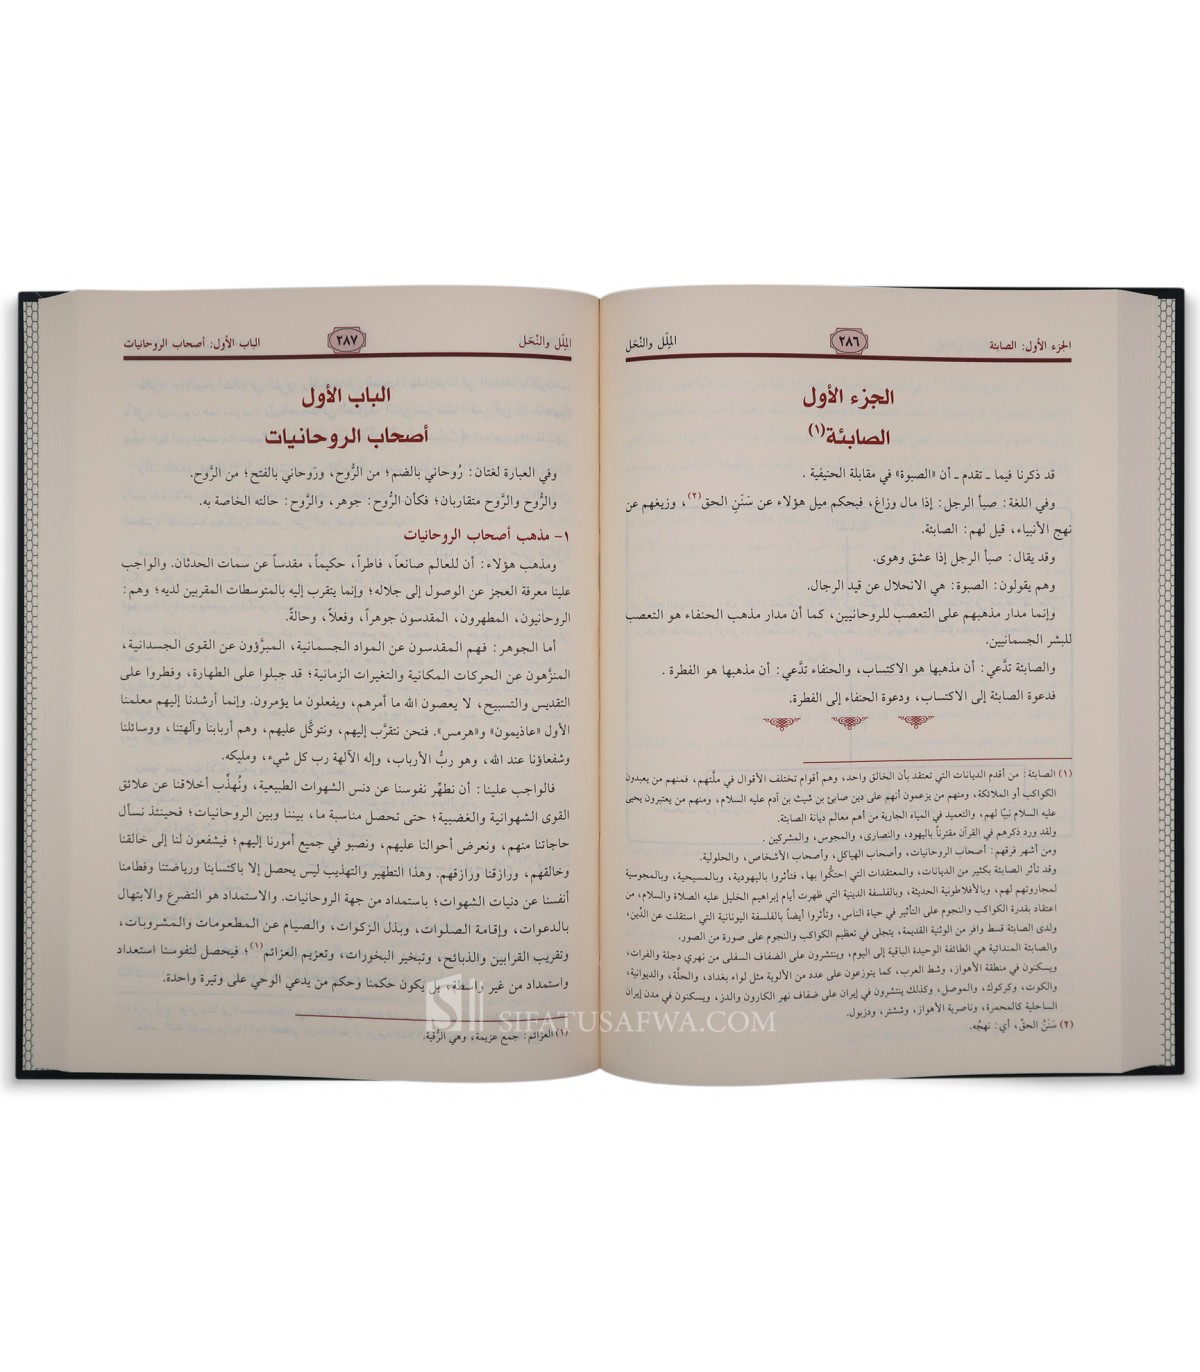 الجزء الأول: الصابئة
٢٨٦
الملل والنحل
الجزء الأول
الصابئة(١)
قد ذكرنا فيما ـ تقدم ـ أن «الصبوة» في مقابلة الحنيفية .
وفي اللغة: صبأ الرجل: إذا مال وزاغ، فبحكم ميل هؤلاء عن سَنَنِ الحق(٢)، وزيغهم عن
نهج الأنبياء، قيل لهم: الصابئة.
وقد يقال: صبأ الرجل إذا عشق وهوى.
وهم يقولون: الصبوة: هي الانحلال عن قيد الرجال.
وإنما مدار مذهبهم على التعصب للروحانيين، كما أن مدار مذهب الحنفاء هو التعصب
للبشر الجسمانيين.
والصابئة تدَّعي: أن مذهبها هو الاكتساب، والحنفاء تدَّعي: أن مذهبها هو الفطرة .
فدعوة الصابئة إلى الاكتساب، ودعوة الحنفاء إلى الفطرة.
(١) الصابئة: من أقدم الديانات التي تعتقد بأن الخالق واحد، وهم أقوام تختلف الأقوال في ملّتهم، فمنهم من يعبدون
الكواكب أو الملائكة، ومنهم من يزعمون أنهم على دين صابئ بن شيث بن آدم عليه السلام، ومنهم من يعتبرون يحيى
عليه السلام نبيًا لهم، والتعميد في المياه الجارية من أهم معالم ديانة الصابئة.
ولقد ورد ذكرهم في القرآن مقترناً باليهود، والنصارى، والمجوس، والمشركين .
ومن أشهر فرقهم: أصحاب الروحانيات، وأصحاب الهياكل، وأصحاب الأشخاص، والحلولية.
وقد تأثر الصابئة بكثير من الديانات، والمعتقدات التي احتكُّوا بها، فتأثروا باليهودية، وبالمسيحية، وبالمجوسية
لمجاروتهم لهم، وبالأفلاطونية الحديثة، وبالفلسفة الدينية التي ظهرت أيام إبراهيم الخليل عليه الصلاة والسلام، من
اعتقاد بقدرة الكواكب والنجوم على التأثير في حياة الناس، وتأثروا أيضاً بالفلسفة اليونانية التي استقلت عن الدِّين،
ولدى الصابئة قسط وافر من الوثنية القديمة، يتجلى في تعظيم الكواكب والنجوم على صورة من الصور.
والصابئة المندائية هي الطائفة الوحيدة الباقية إلى اليوم، وينتشرون على الضفاف السفلى من نهري دجلة والفرات،
ويسكنون في منطقة الأهواز، وشط العرب، كما يتوزعون على عدد من الألوية مثل لواء بغداد، والحلّة، والديوانية،
والكوت، وكركوك، والموصل، وكذلك ينتشرون في إيران على ضفاف نهر الكارون والدز، ويسكنون في مدن إيران
الساحلية كالمحمرة، وناصرية الأهواز، وششتر، ودزبول.
(٢) سَنَنُ الحقّ، أي: نهجُه.
الملل والنحل
٢٨٧
الباب الأول: أصحاب الروحانيات
الباب الأول
أصحاب الروحانيات
وفي العبارة لغتان: رُوحاني بالضم؛ من الرُّوح، ورَوحاني بالفتح؛ من الرَّوح.
والرُّوح والرَّوح متقاربان؛ فكأن الرُّوح: جوهر، والرَّوح: حالته الخاصة به.
١- مذهب أصحاب الروحانيات
ومذهب هؤلاء: أن للعالم صانعاً، فاطراً، حكيماً، مقدساً عن سمات الحدثان. والواجب
علينا معرفة العجز عن الوصول إلى جلاله؛ وإنما يتقرب إليه بالمتوسطات المقربين لديه؛ وهم:
الروحانيون، المطهرون، المقدسون جوهراً، وفعلاً، وحالةً.
أما الجوهر: فهم المقدسون عن المواد الجسمانية، المبرَّؤون عن القوى الجسدانية،
المنزَّهون عن الحركات المكانية والتغيرات الزمانية؛ قد جبلوا على الطهارة، وفطروا على
التقديس والتسبيح، لا يعصون الله ما أمرهم، ويفعلون ما يؤمرون. وإنما أرشدنا إليهم معلمنا
الأول «عاذيمون» و«هرمس». فنحن نتقرَّب إليهم، ونتوكَّل عليهم، وهم أربابنا وآلهتنا، ووسائلنا
وشفعاؤنا عند الله، وهو ربُّ الأرباب، وإله الآلهة رب كل شيء، ومليكه.
فالواجب علينا: أن نطهِّر نفوسنا عن دنس الشهوات الطبيعية، ونُهذِّب أخلاقنا عن علائق
القوى الشهوانية والغضبية؛ حتى تحصل مناسبة ما، بيننا وبين الروحانيات؛ فحينئذ نسأل
حاجاتنا منهم، ونعرض أحوالنا عليهم، ونصبو في جميع أمورنا إليهم؛ فيشفعون لنا إلى خالقنا
وخالقهم، ورازقنا ورازقهم. وهذا التطهير والتهذيب ليس يحصل إلا باكتسابنا ورياضتنا وفطامنا
أنفسنا عن دنيات الشهوات؛ باستمداد من جهة الروحانيات. والاستمداد هو التضرع والابتهال
بالدعوات، وإقامة الصلوات، وبذل الزكوات، والصيام عن المطعومات والمشروبات،
وتقريب القرابين والذبائح، وتبخير البخورات، وتعزيم العزائم(١)؛ فيحصل لنفوسنا استعداد
واستمداد من غير واسطة، بل يكون حكمنا وحكم من يدعي الوحي على وتيرة واحدة.
(١) العزائم: جمع عزيمة، وهي الرُّقية.
SIFATUSAFWA.COM